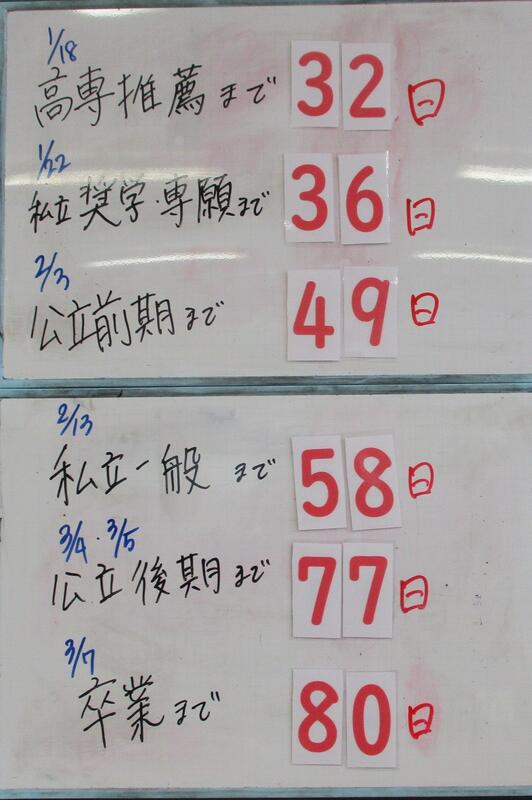 1/18
高専推薦まで 32日
1/22
私立奨学・専願まで 36日
2/3
公立前期まで 49日
2/13
私立一般まで 58日
3/4・3/5
公立後期まで 77日
3/7
卒業まで 80日